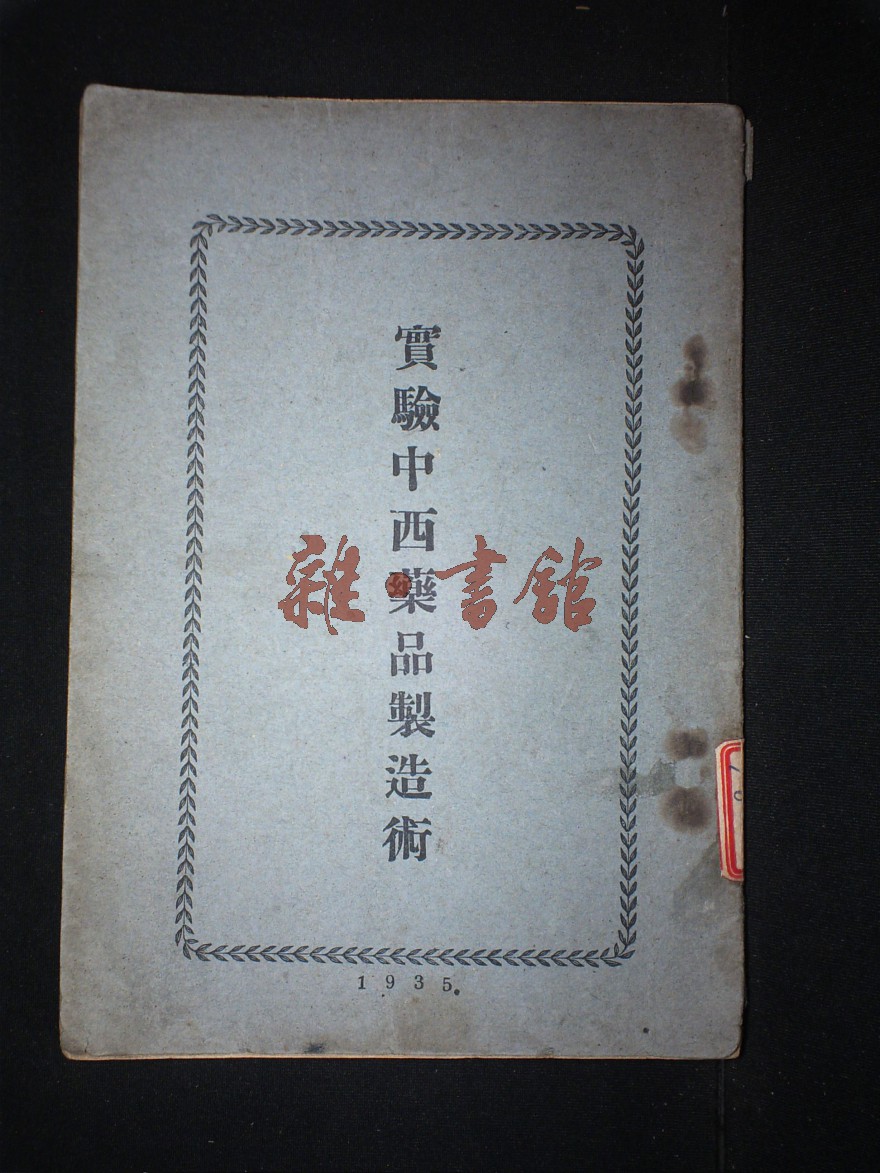 實驗中西藥品製造術
雜·書館
1935.